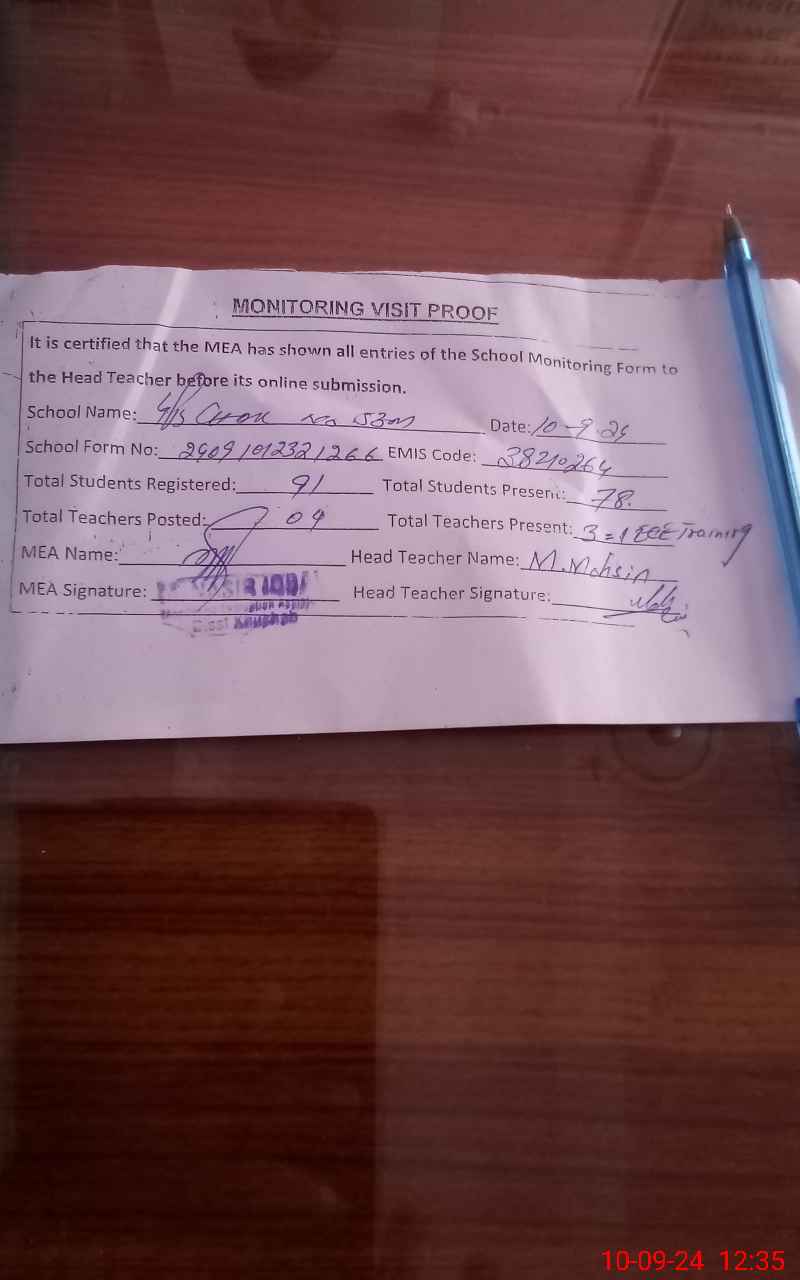 MONITORING VISIT PROOF
It is certified that the MEA has shown all entries of the School Monitoring Form to
the Head Teacher before its online submission.
School Name: Date: 10-9.24
School Form No: 24091012321266 EMIS Code: 38210264
Total Students Registered: 91 Total Students Present: 78.
Total Teachers Posted: 04 Total Teachers Present: 3 = 1 ECE Training
MEA Name: Head Teacher Name: M.Mohsin
MEA Signature: Head Teacher Signature:
10-09-24 12:35